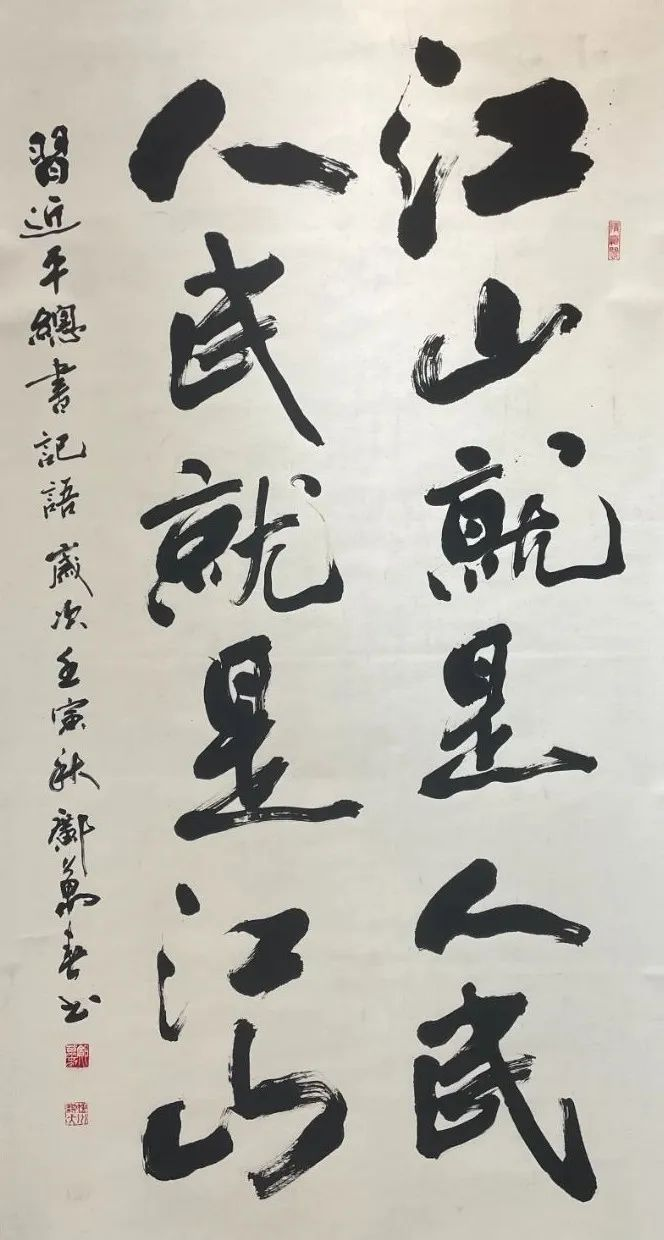 江山就是人民
人民就是江山
習近平總書記語 歲次壬寅秋 鄺萬春书